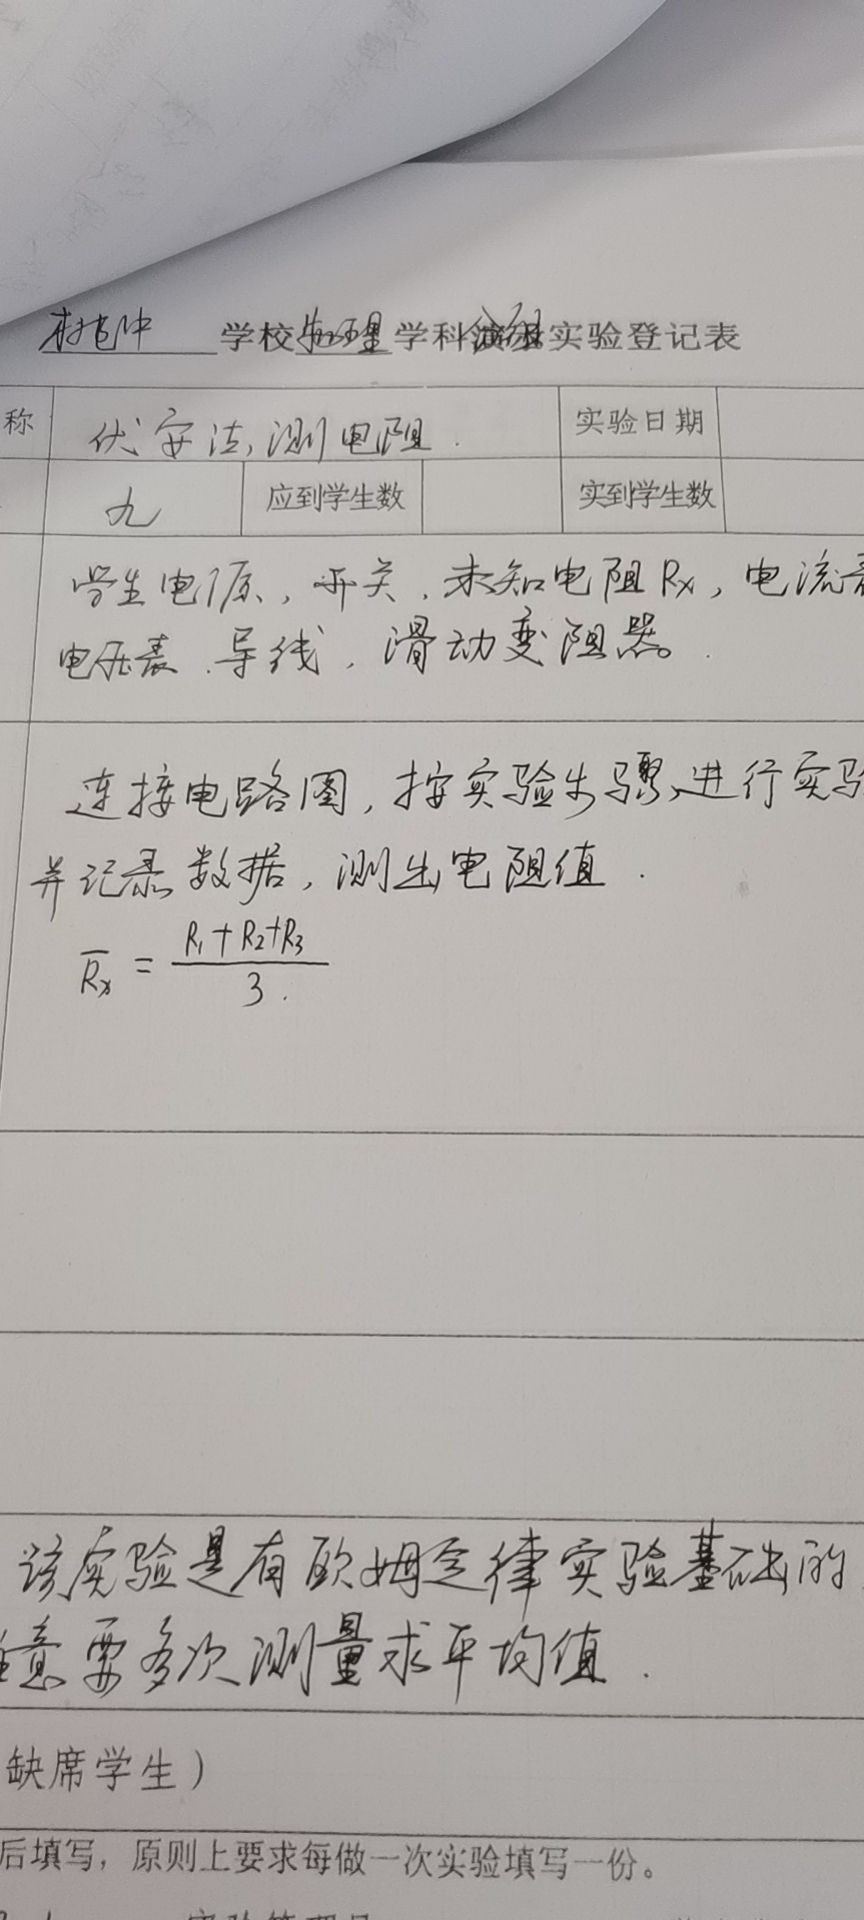 学校物理学科实验登记表
称 伏安法测电阻. 实验日期
九 应到学生数 实到学生数
学生电源, 开关, 未知电阻Rx, 电流表
电压表, 导线, 滑动变阻器.
连接电路图, 按实验步骤, 进行实验
并记录数据, 测出电阻值.
R̄x = (R1+R2+R3)/3.
该实验是有欧姆定律实验基础的
意要多次测量求平均值.
缺席学生)
后填写，原则上要求每做一次实验填写一份。